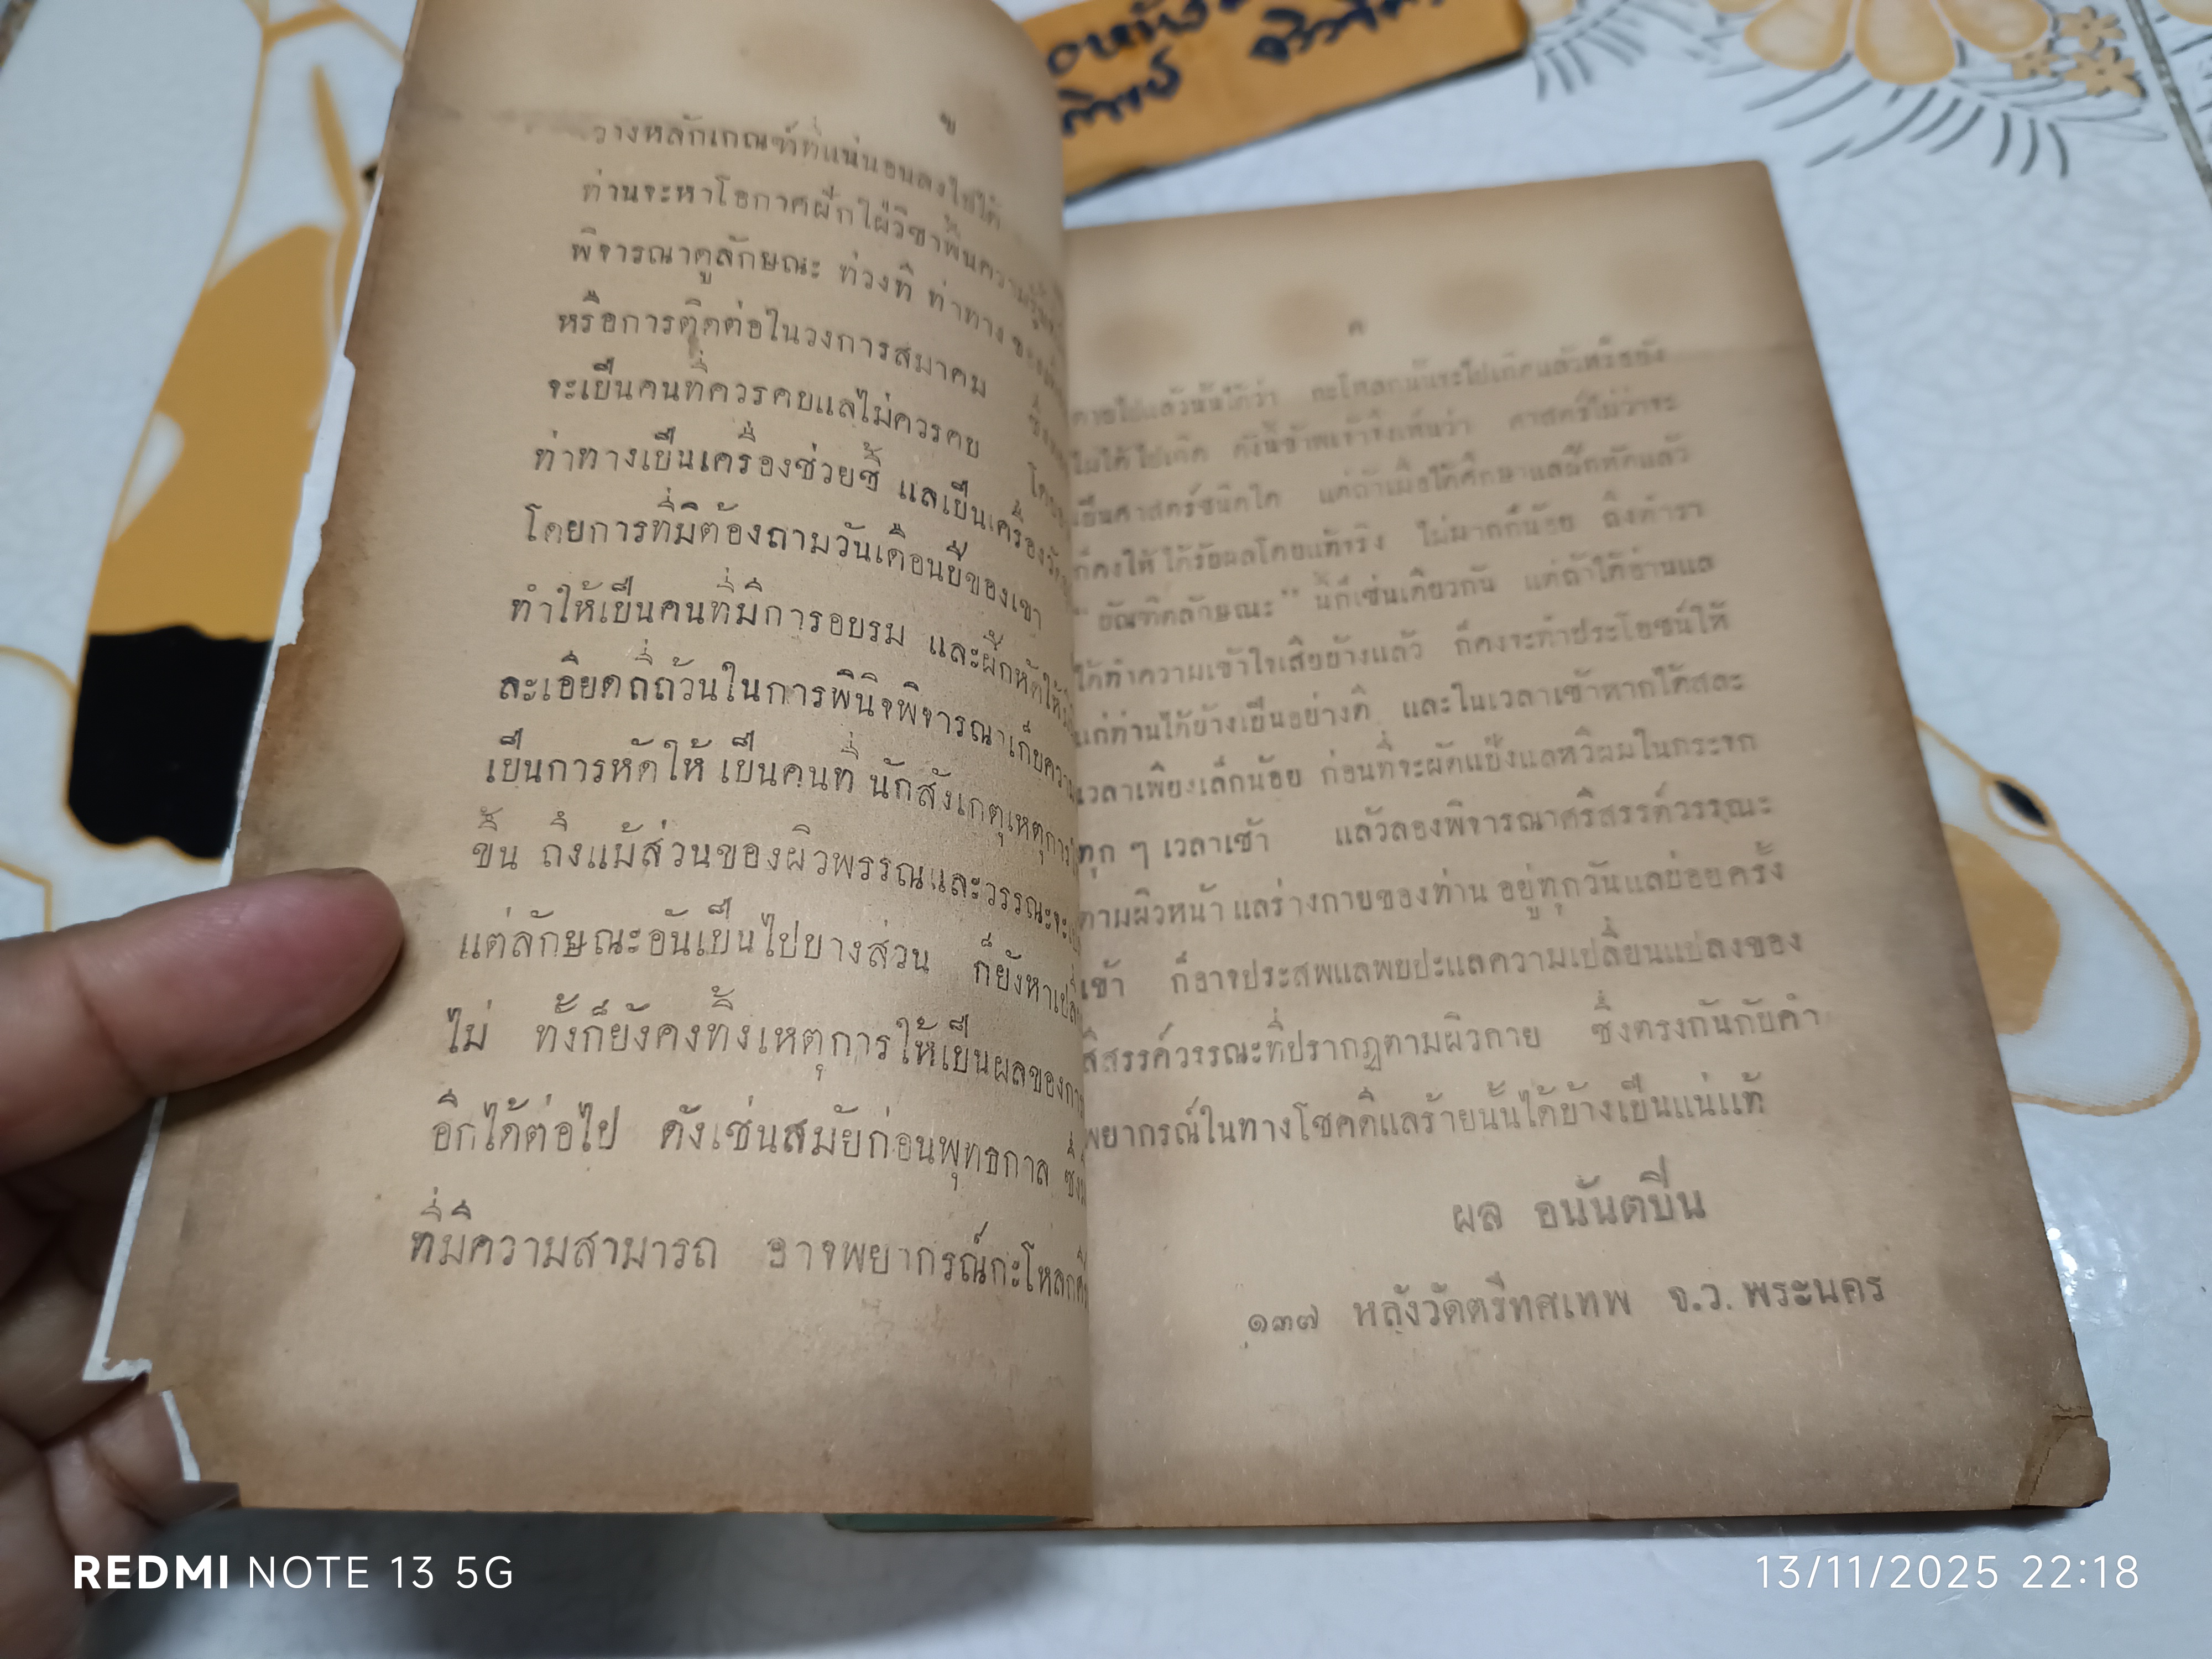 ข
วางหลักเกณฑ์ที่แน่นอนลงไปได้
ท่านจะหาโอกาศฝักใฝ่วิชาพื้นความรู้
พิจารณาดูลักษณะ ท่วงที ท่าทาง ของ
หรือการติดต่อในวงการสมาคม ซึ่ง
จะเป็นคนที่ควรคบแลไม่ควรคบ โดย
ท่าทางเป็นเครื่องช่วยชี้ แลเป็นเครื่องวัด
โดยการที่มิต้องถามวันเดือนปีของเขา
ทำให้เป็นคนที่มีการอบรม และฝึกหัดให้
ละเอียดถี่ถ้วนในการพินิจพิจารณาเก็บความ
เป็นการหัดให้ เป็นคนที่ นักสังเกตุเหตุการ
ขึ้น ถึงแม้ส่วนของผิวพรรณและวรรณะจะ
แต่ลักษณะอันเป็นไปบางส่วน ก็ยังหาเปลี่
ไม่ ทั้งก็ยังคงทิ้งเหตุการให้เป็นผลของการ
อีกได้ต่อไป ดังเช่นสมัยก่อนพุทธกาล ซึ่ง
ที่มีความสามารถ อาจพยากรณ์กะโหลกศี
ค
ตายไปแล้วนั้นได้ว่า กะโหลกนั้นจะไปเกิดแล้วหรือยัง
ไม่ได้ไปเกิด ดังนี้ข้าพเจ้าจึงเห็นว่า ศาสตร์ไม่ว่าจะ
เป็นศาสตร์ชนิดใด แต่ถ้าเมื่อได้ศึกษาแลฝึกหัดแล้ว
ก็คงให้ได้รับผลโดยแท้จริง ไม่มากก็น้อย ถึงตำรา
" บัณฑิตลักษณะ " นี้ก็เช่นเดียวกัน แต่ถ้าได้อ่านแล
ได้ทำความเข้าใจเสียบ้างแล้ว ก็คงจะทำประโยชน์ให้
แก่ท่านได้บ้างเป็นอย่างดี และในเวลาเช้าหากได้สละ
เวลาเพียงเล็กน้อย ก่อนที่จะผัดแป้งแลหวีผมในกระจก
ทุก ๆ เวลาเช้า แล้วลองพิจารณาศรีสรรค์วรรณะ
ตามผิวหน้า แลร่างกายของท่าน อยู่ทุกวันแลบ่อยครั้ง
เข้า ก็อาจประสพแลพบปะแลความเปลี่ยนแปลงของ
สีสรรค์วรรณะที่ปรากฏตามผิวกาย ซึ่งตรงกันกับคำ
พยากรณ์ในทางโชคดีแลร้ายนั้นได้บ้างเป็นแน่แท้
ผล อนันตปีน
๑๓๗ หลังวัดตรีทศเทพ จ.ว. พระนคร
REDMI NOTE 13 5G
13/11/2025 22:18